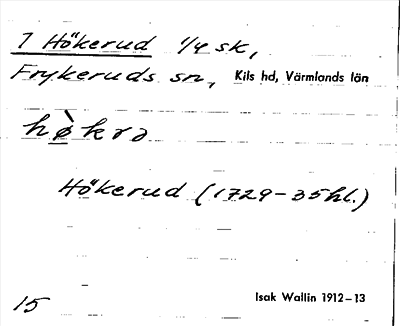 1 Hökerud 1/4 sk,
Frykeruds sn, Kils hd, Värmlands län
hø̀krə
Hökerud (1729-35 hl.)
15
Isak Wallin 1912-13